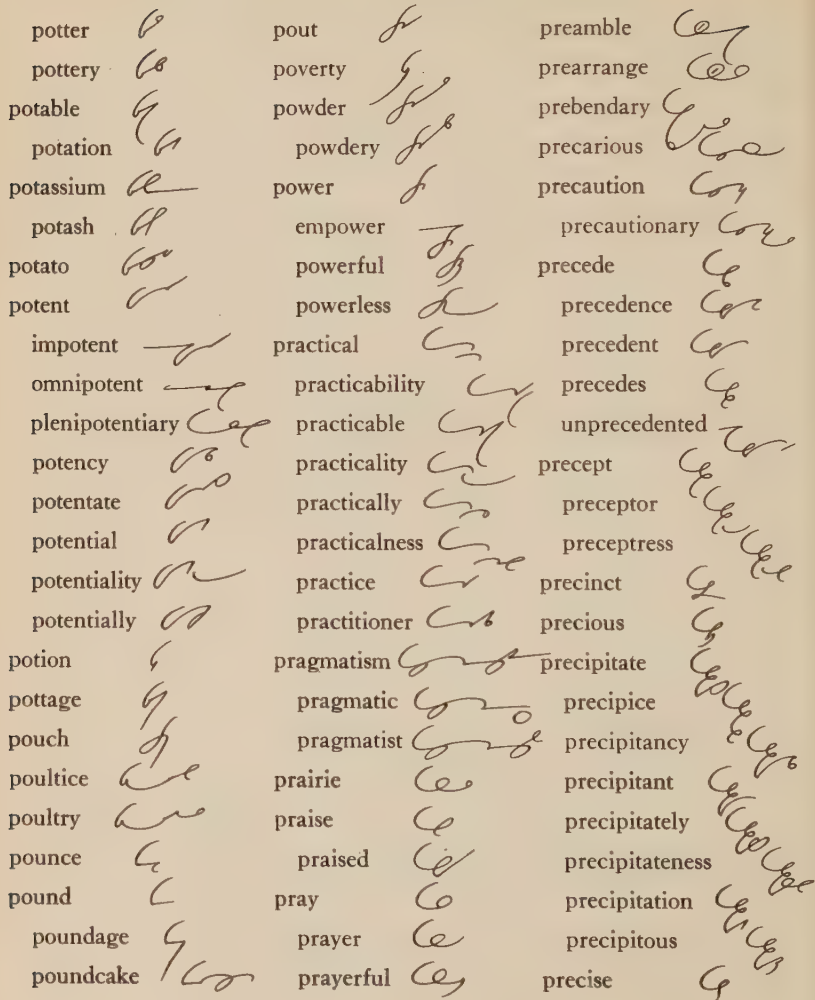 potter
pottery
potable
potation
potassium
potash
potato
potent
impotent
omnipotent
plenipotentiary
potency
potentate
potential
potentiality
potentially
potion
pottage
pouch
poultice
poultry
pounce
pound
poundage
poundcake
pout
poverty
powder
powdery
power
empower
powerful
powerless
practical
practicability
practicable
practicality
practically
practicalness
practice
practitioner
pragmatism
pragmatic
pragmatist
prairie
praise
praised
pray
prayer
prayerful
preamble
prearrange
prebendary
precarious
precaution
precautionary
precede
precedence
precedent
precedes
unprecedented
precept
preceptor
preceptress
precinct
precious
precipitate
precipice
precipitancy
precipitant
precipitately
precipitateness
precipitation
precipitous
precise